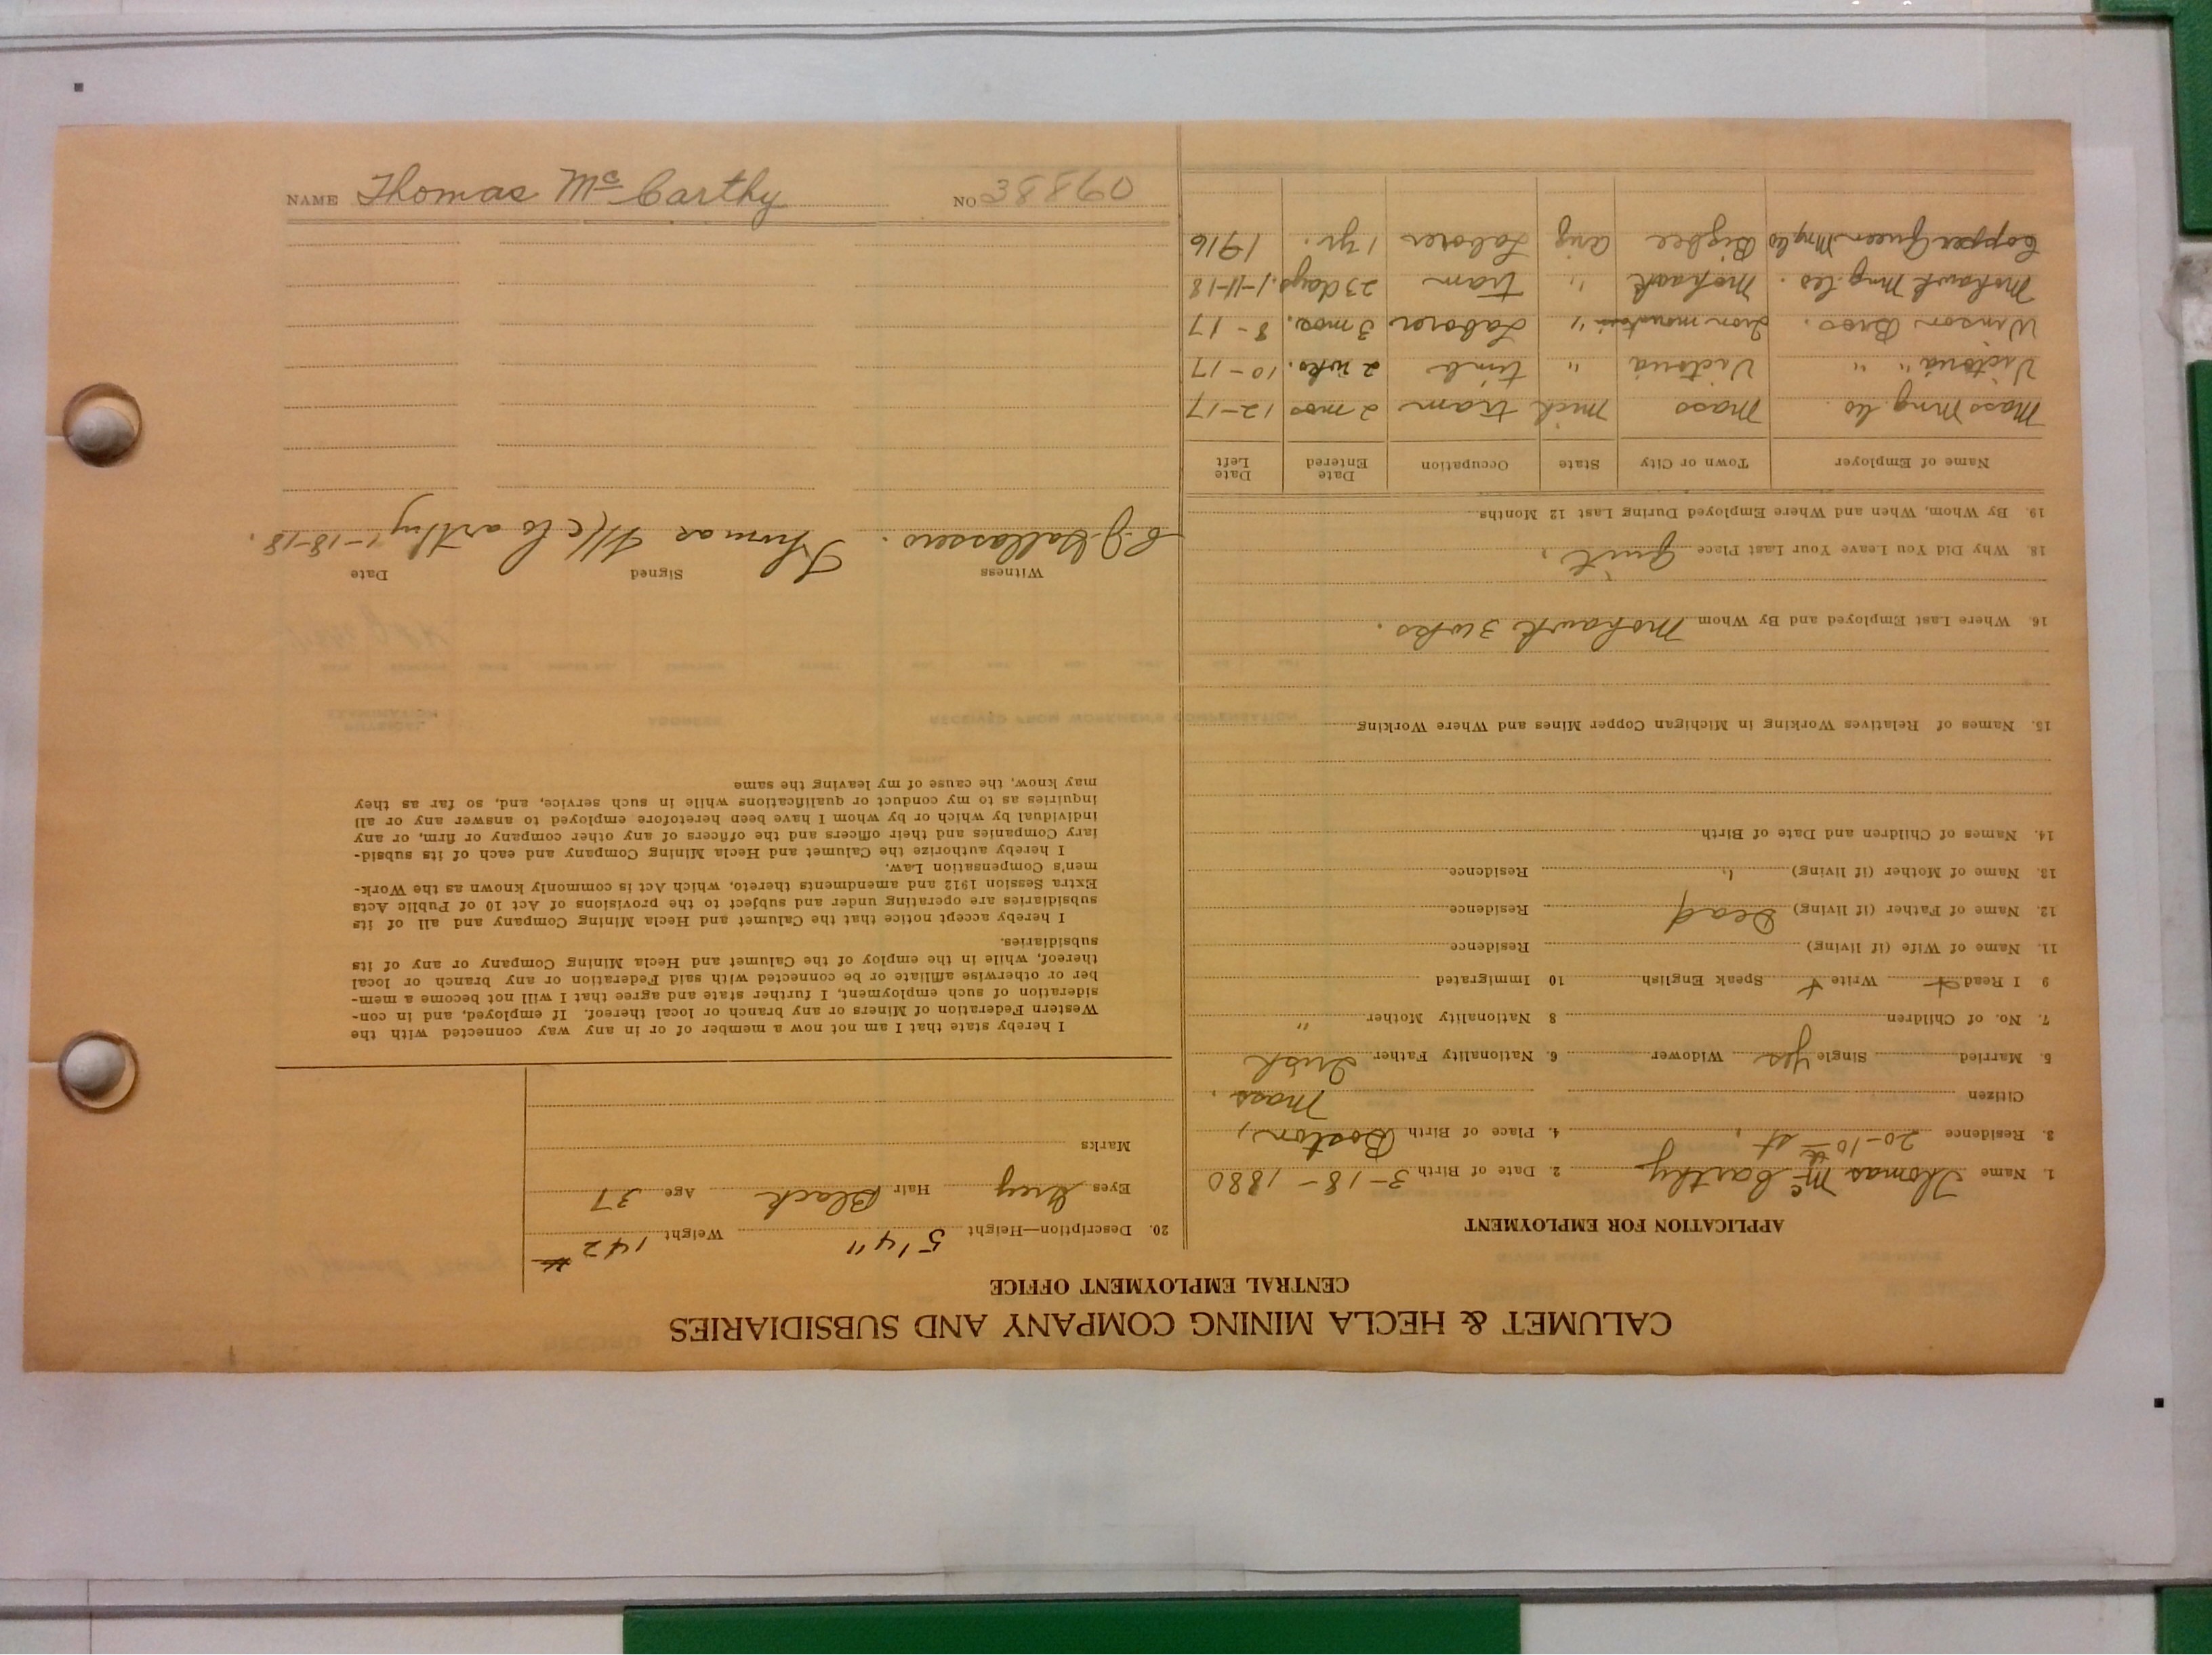 CALUMET & HECLA MINING COMPANY AND SUBSIDIARIES
CENTRAL EMPLOYMENT OFFICE
APPLICATION FOR EMPLOYMENT
1. Name Thomas Mc Carthy 2. Date of Birth 3-18-1880
3. Residence 20-10th st, 4. Place of Birth Boston,
Citizen Mass.
5. Married Single Yes Widower 6. Nationality Father Irish
7. No. of Children 8 Nationality Mother "
9 I Read + Write + Speak English 10 Immigrated
11. Name of Wife (if living) Residence
12. Name of Father (if living) Dead Residence
13. Name of Mother (if living) " Residence
14. Names of Children and Date of Birth
15. Names of Relatives Working in Michigan Copper Mines and Where Working
16. Where Last Employed and By Whom Mohawk 3 wks.
18. Why Did You Leave Your Last Place Quit.
19. By Whom, When and Where Employed During Last 12 Months
Name of Employer Town or City State Occupation Date Entered Date Left
Mass Mng. Co. Mass Mich tram 2 mos 12-17
Victoria " " Victoria " timb 2 wks. 10-17
Winson Bros. Iron mountain " Laborer 3 mos. 8-17
Mohawk Mng. Co. Mohawk " tram 23 days. 1-11-18
Copper Queen Mng Co Bisbee Ariz Laborer 1 yr. 1916
20. Description—Height 5'4" Weight 142 #
Eyes Grey Hair Black Age 37
Marks
I hereby state that I am not now a member of or in any way connected with the
Western Federation of Miners or any branch or local thereof. If employed, and in con-
sideration of such employment, I further state and agree that I will not become a mem-
ber or otherwise affiliate or be connected with said Federation or any branch or local
thereof, while in the employ of the Calumet and Hecla Mining Company or any of its
subsidiaries.
I hereby accept notice that the Calumet and Hecla Mining Company and all of its
subsidiaries are operating under and subject to the provisions of Act 10 of Public Acts
Extra Session 1912 and amendments thereto, which Act is commonly known as the Work-
men's Compensation Law.
I hereby authorize the Calumet and Hecla Mining Company and each of its subsid-
iary Companies and their officers and the officers of any other company or firm, or any
individual by which or by whom I have been heretofore employed to answer any or all
inquiries as to my conduct or qualifications while in such service, and, so far as they
may know, the cause of my leaving the same
Witness Signed Date
Thomas McCarthy 1-18-18.
NAME Thomas Mc Carthy NO